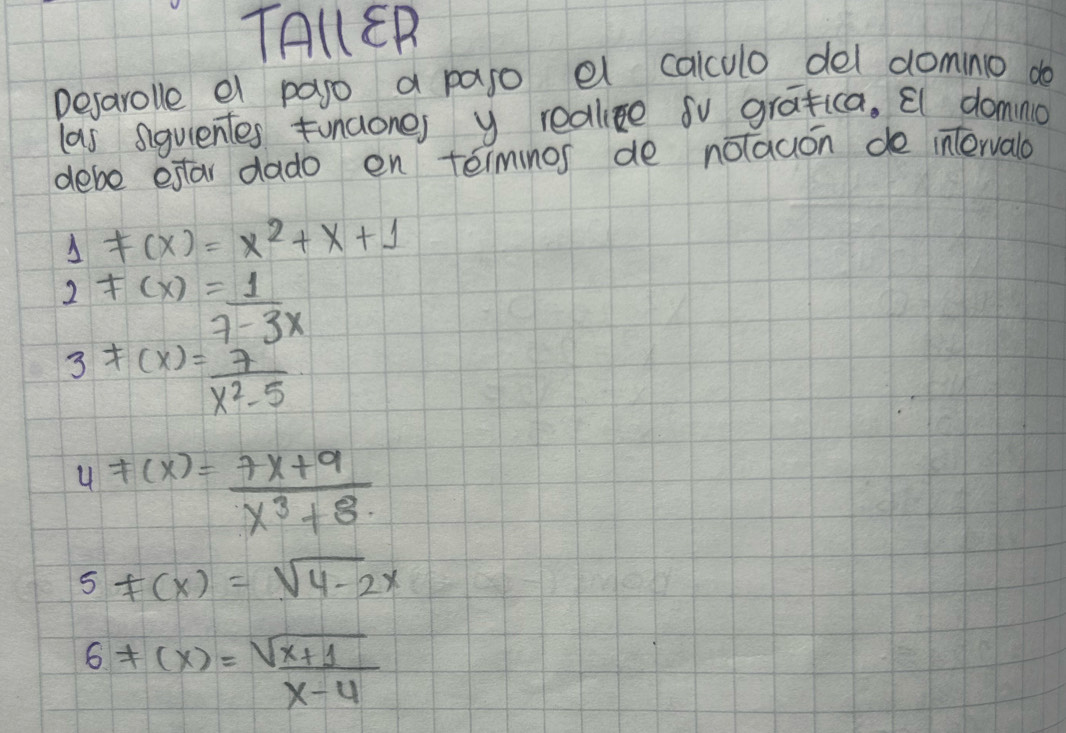 TALLER
Desarolle el paso a paso el calculo del dominio de
las siguientes funciones y realize su gráfica. El dominio
debe estar dado en términos de notación de intervalo
1 f(x) = x² + x + 1
2 f(x) = 1
7 - 3x
3 f(x) = 7
x² - 5
4 f(x) = 7x + 9
x³ + 8
5 f(x) = √4 - 2x
6 f(x) = √x + 1
x - 4